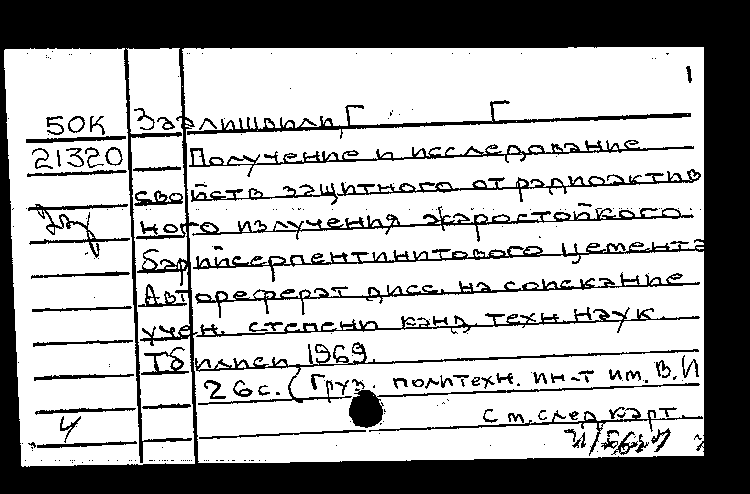 1
50К Заалишвили, Г Г
21320 Получение и исследование
свойств защитного от радиоактив
ного излучения жаростойкого
барийсерпентинитового цемента
Автореферат дисс. на соискание
учен. степени канд. техн. наук.
Тбилиси, 1969.
26 с. (Груз. политехн. ин-т им. В.И
См. след. карт.
4